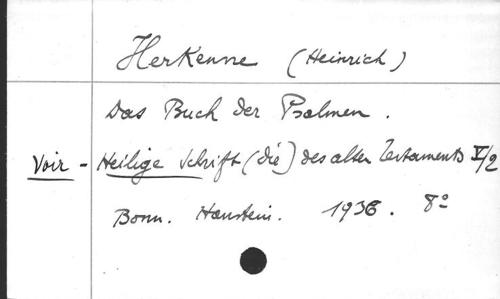 Herkenne (Heinrich)
Das Buch der Psalmen.
Voir - Heilige Schrift (die) des alten Testaments V/2
Bonn. Hanstein. 1936. 8°